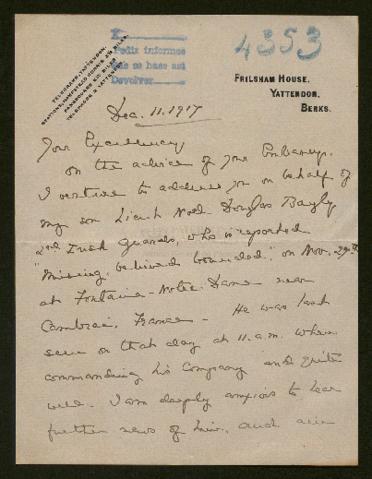 4353
Pedir informes
Devolver
FRILSHAM HOUSE,
YATTENDON,
BERKS.
TELEGRAMS, YATTENDON.
Dec. 11. 1917
Your Excellency
On the advice of your Embassy,
I venture to address you on behalf of
my son Lieut Noel Douglas Bayly
2nd Irish Guards, who is reported
"Missing, believed wounded," on Nov. 27th
at Fontaine-Notre Dame near
Cambrai, France - He was last
seen on that day at 11. a.m. when
commanding his Company and quite
well. I am deeply anxious to hear
further news of him, and am